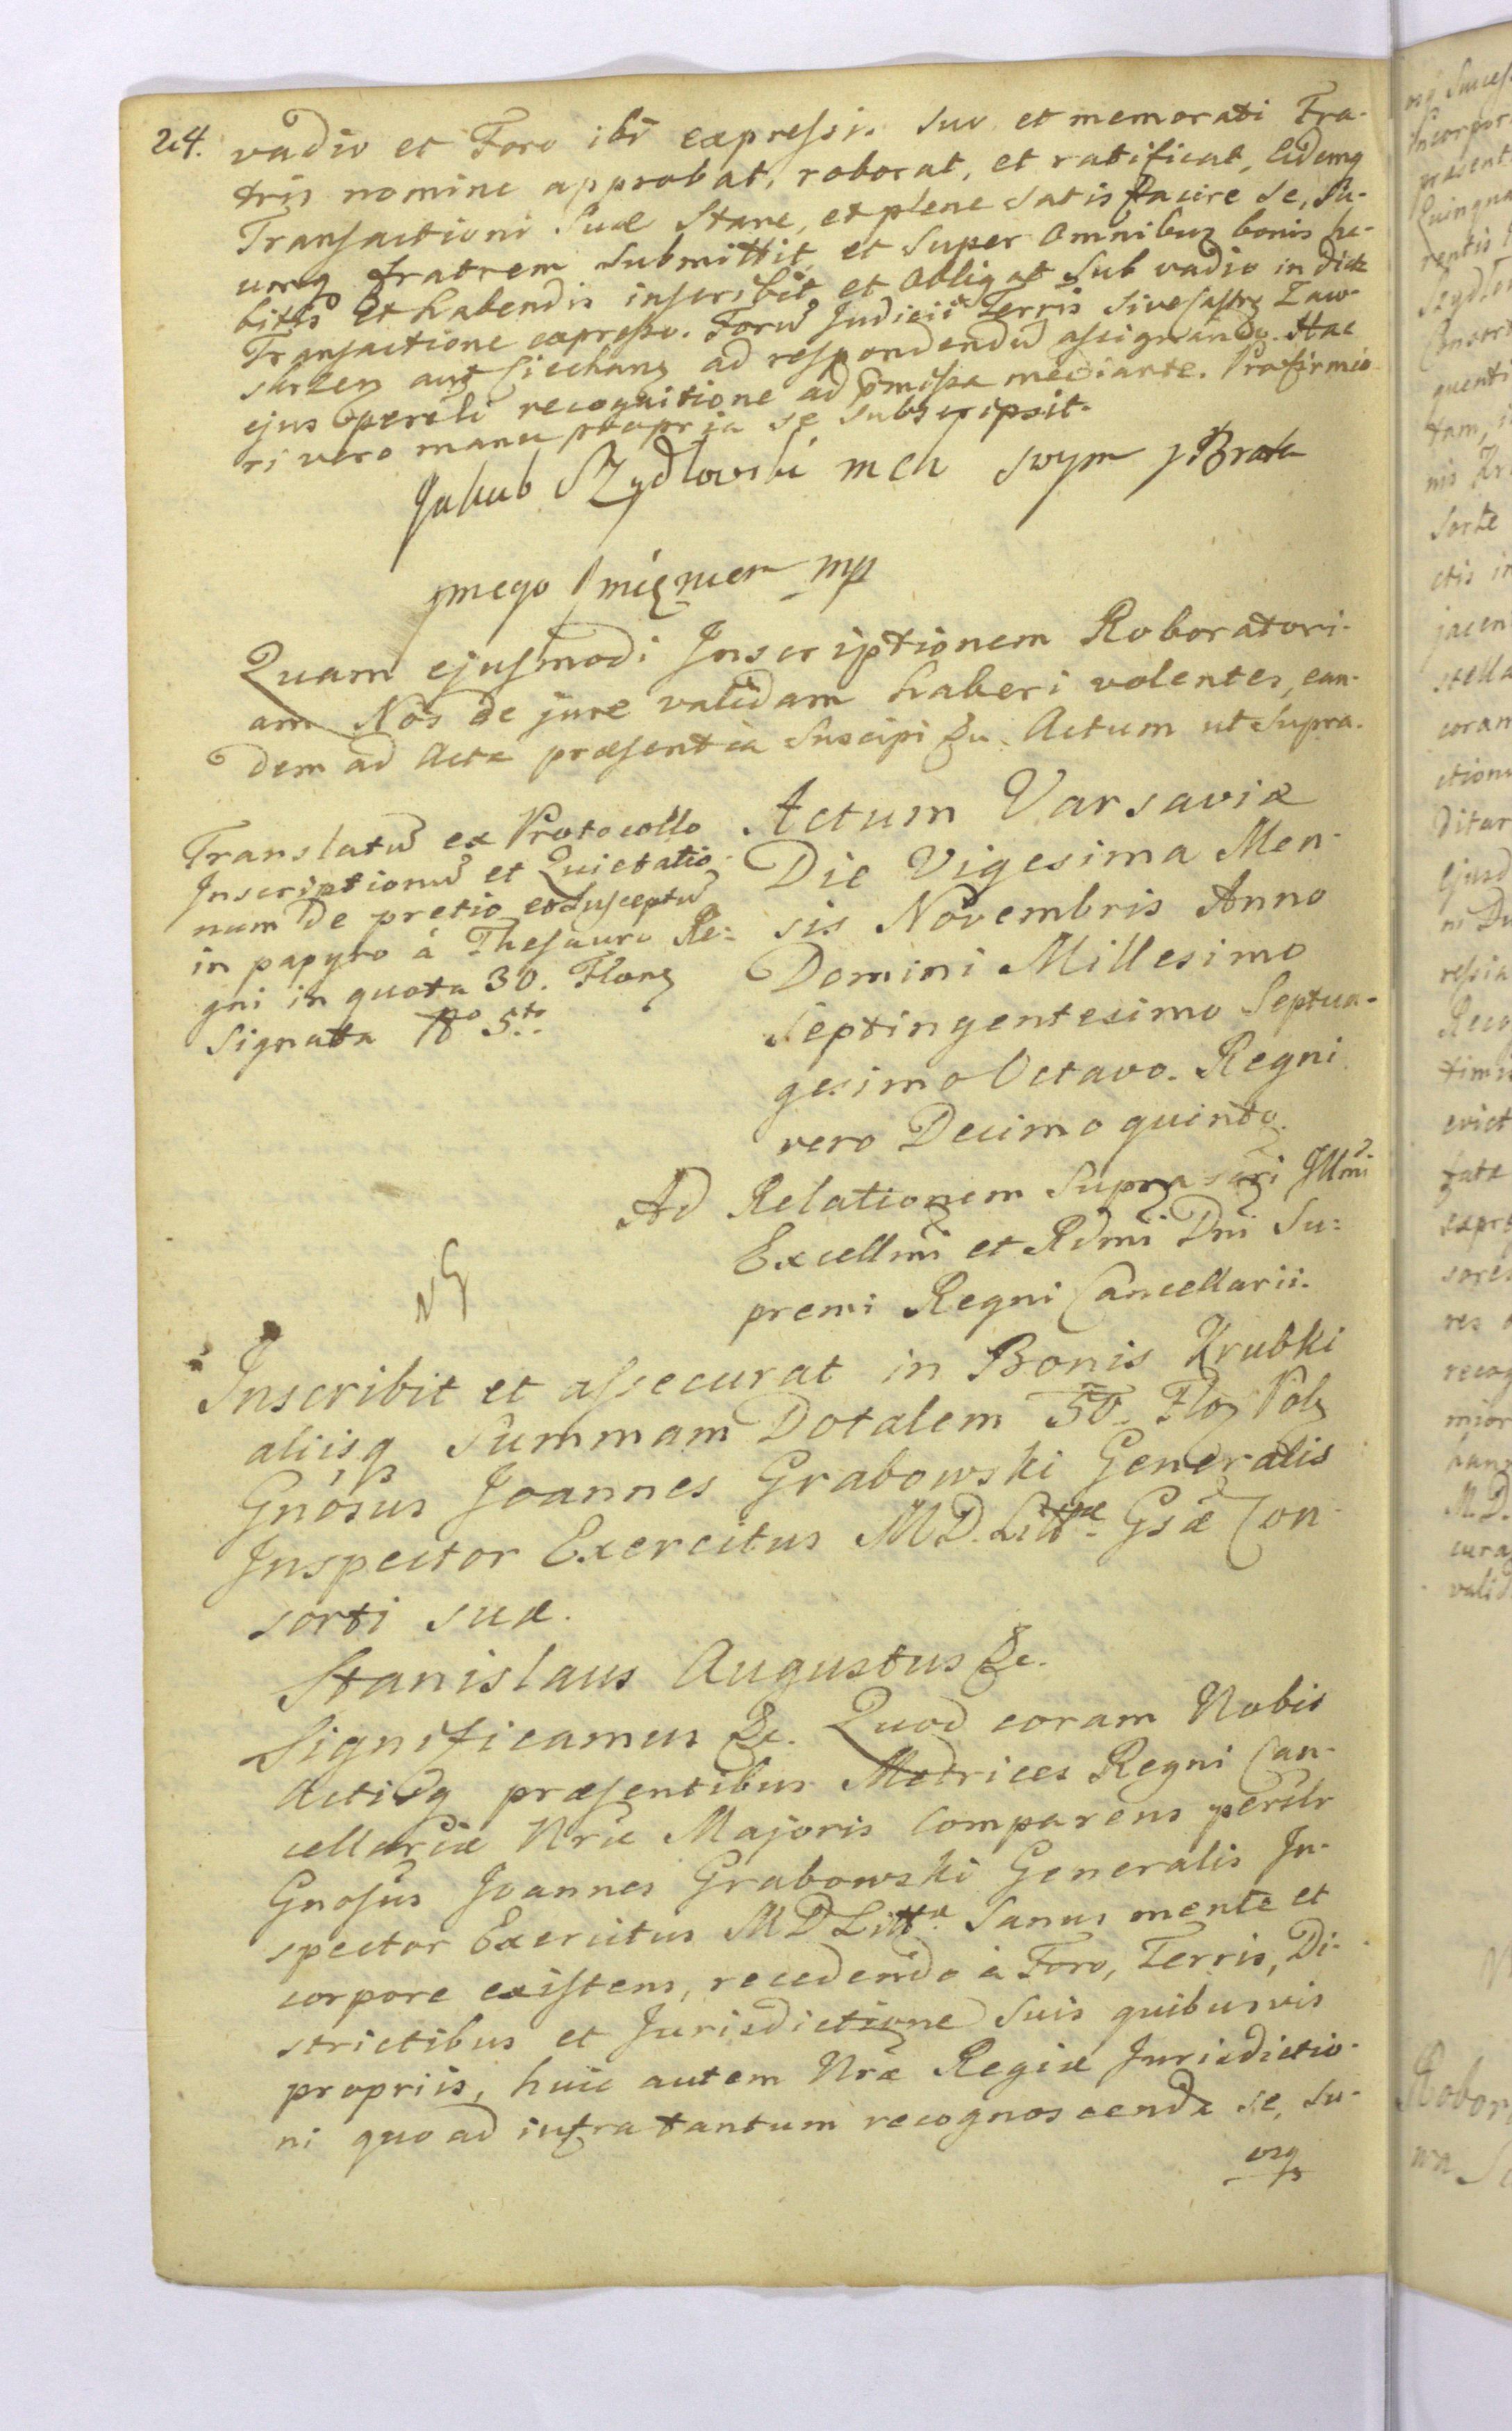 24.
vadio et Foro ibi expressis suo et memorati Fra-
tris nomine approbat, roborat, et ratificat, eidemq
Transactioni suæ stare, et plene satisfacere se, su-
umq fratrem submittit, et super omnibus bonis ha-
bitis et habendis inscribit et obligat sub vadio in dicta
Transactione expresso. Forū Judicii Terris sive Castrz Zaw-
skrzen aut Ciechanz ad respondendū assignando. Hac
ejus persli recognitione ad præmissa mediante. Pro firmio
ri vero manu propria se subscripsit.
Jakub Szydłowski mch swym y Brata
mego Imięniem mp
Quam ejusmodi Inscriptionem Roboratori-
am Nos de jure validam haberi volentes, ean-
dem ad Acta præsentia suscipi &c. Actum ut supra.
Translatū ex Protocollo
Inscriptionū et Quietatio-
num de pretio et susceptū
in papyro à Thesauro Re-
gni in quota 30. Florz
signata No 5to.
Actum Varsaviæ
Die Vigesima Men-
sis Novembris Anno
Domini Millesimo
septingentesimo Septua-
gesimo Octavo. Regni
vero Decimo quinto.
Ad Relationem suprascri Illmi
Excellmi et Rdmi Dni Su-
premi Regni Cancellarii.
Inscribit et assecurat in Bonis Krubki
aliisq Summam Dotalem 50. Floz Polz
Gnosus Joannes Grabowski Generalis
Inspector Exercitus M D. Littæ Gsæ Con-
sorti suæ.
Stanislaus Augustus &c.
Significamus &c. Quod coram Nobis
Actisq præsentibus Metrices Regni Can-
cellariæ Nræ Majoris Comparens perslr
Gnosus Joannes Grabowski Generalis In-
spector Exercitus M D Littæ. Sanus mente et
corpore existens, recedendo à Foro, Terris, Di-
strictibus et Jurisdictione suis quibusvis
propriis, huic autem Nræ Regiæ Jurisdictio-
ni quo ad infra tantum recognoscenda se, su-
osq